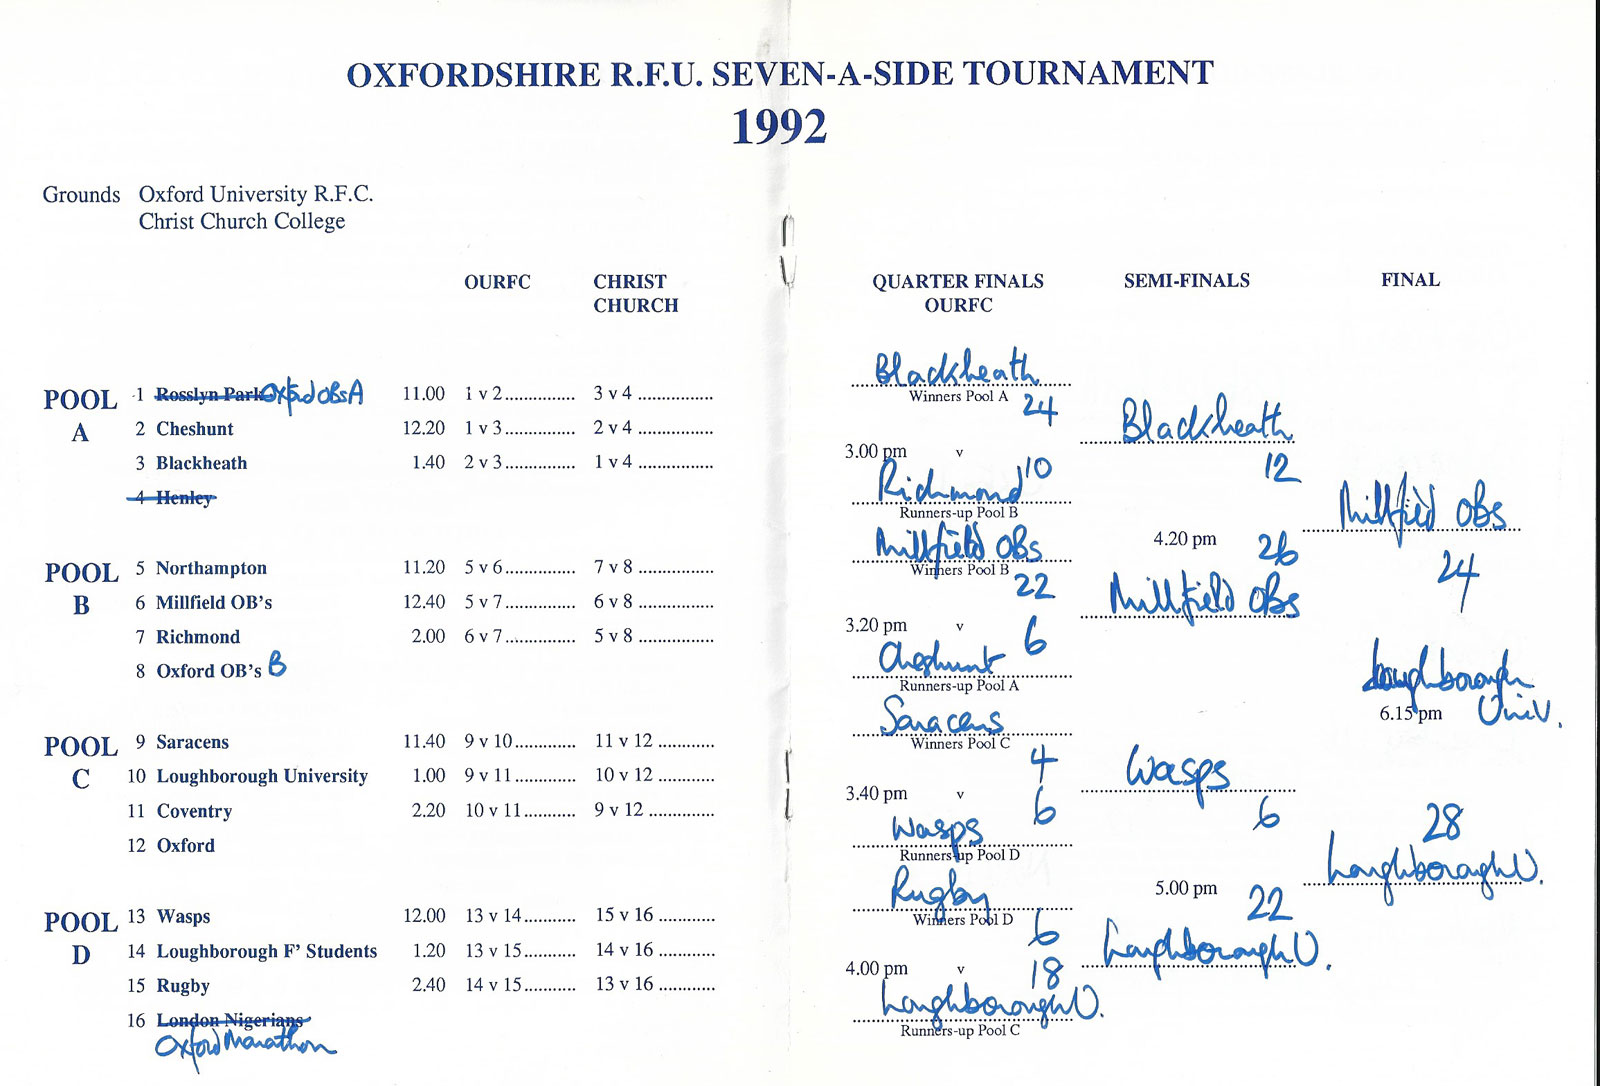 OXFORDSHIRE R.F.U. SEVEN-A-SIDE TOURNAMENT
1992
Grounds Oxford University R.F.C.
Christ Church College
OURFC CHRIST CHURCH
POOL A
1 Rosslyn Park Oxford OBs A 11.00 1 v 2............ 3 v 4 .............
2 Cheshunt 12.20 1 v 3............ 2 v 4 .............
3 Blackheath 1.40 2 v 3............ 1 v 4 .............
4 Henley
POOL B
5 Northampton 11.20 5 v 6............ 7 v 8 .............
6 Millfield OB's 12.40 5 v 7............ 6 v 8 .............
7 Richmond 2.00 6 v 7............ 5 v 8 .............
8 Oxford OB's B
POOL C
9 Saracens 11.40 9 v 10.......... 11 v 12 ..........
10 Loughborough University 1.00 9 v 11.......... 10 v 12 ..........
11 Coventry 2.20 10 v 11......... 9 v 12 ............
12 Oxford
POOL D
13 Wasps 12.00 13 v 14......... 15 v 16 ..........
14 Loughborough F' Students 1.20 13 v 15......... 14 v 16 ..........
15 Rugby 2.40 14 v 15......... 13 v 16 ..........
16 London Nigerians
Oxford Marathon
QUARTER FINALS
OURFC
Blackheath
Winners Pool A
24
3.00 pm v
10
Richmond
Runners-up Pool B
Millfield OBs
Winners Pool B
22
3.20 pm v
6
Cheshunt
Runners-up Pool A
Saracens
Winners Pool C
4
3.40 pm v
6
Wasps
Runners-up Pool D
Rugby
Winners Pool D
6
4.00 pm v
18
Loughborough U.
Runners-up Pool C
SEMI-FINALS
Blackheath
12
4.20 pm
26
Millfield OBs
Wasps
6
5.00 pm
22
Loughborough U.
FINAL
Millfied OBs
24
Loughborough
6.15 pm Univ.
28
Loughborough U.